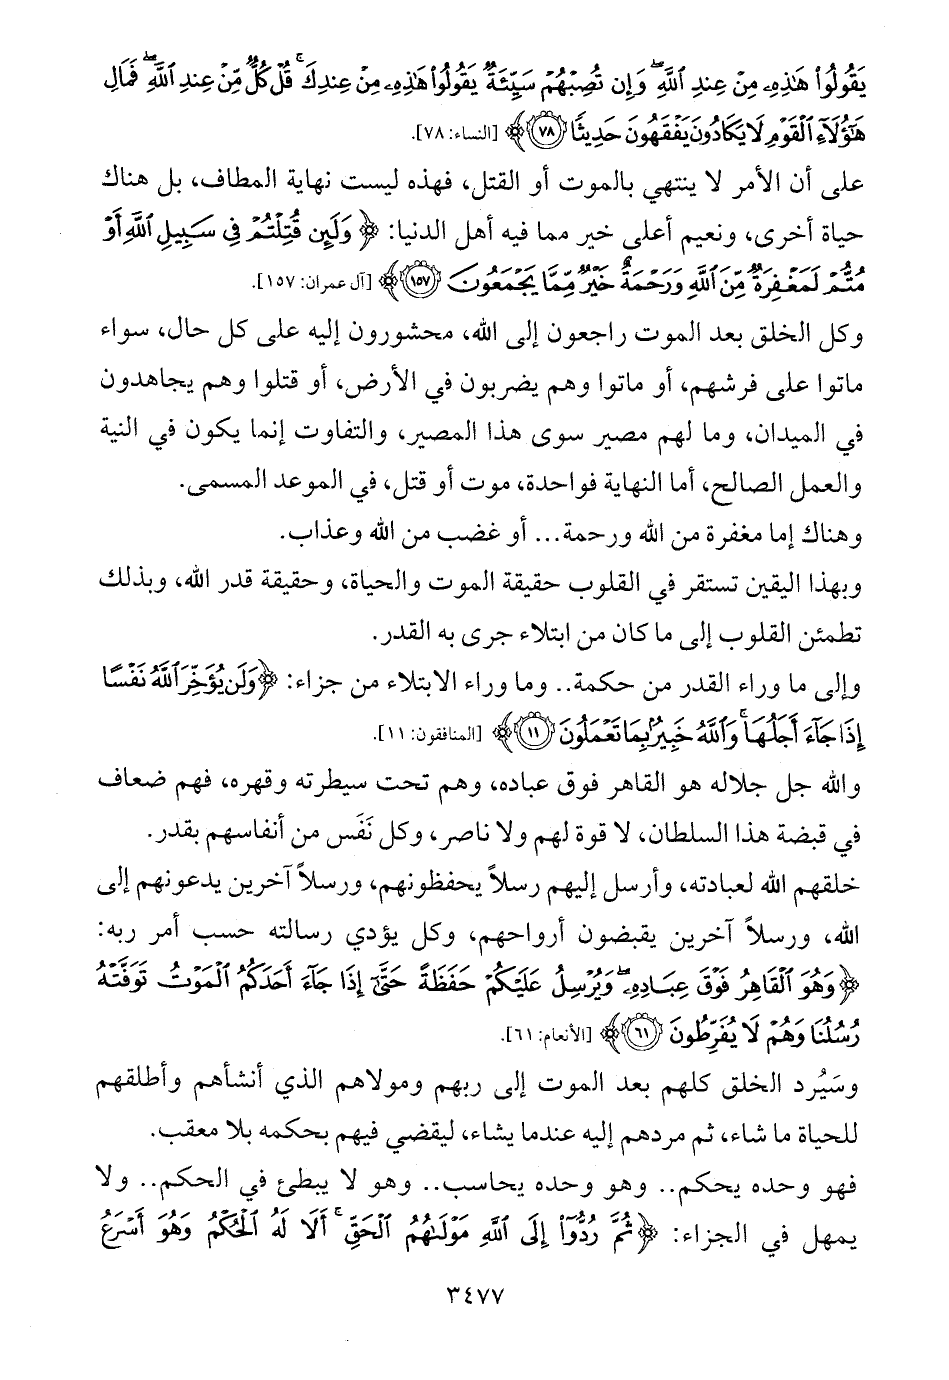 يَقُولُوا۟ هَـٰذِهِۦ مِنْ عِندِ ٱللَّهِ ۖ وَإِن تُصِبْهُمْ سَيِّئَةٌ يَقُولُوا۟ هَـٰذِهِۦ مِنْ عِندِكَ ۚ قُلْ كُلٌّ مِّنْ عِندِ ٱللَّهِ ۖ فَمَالِ
هَـٰٓؤُلَآءِ ٱلْقَوْمِ لَا يَكَادُونَ يَفْقَهُونَ حَدِيثًا ۝٧٨﴾ [النساء: ٧٨].
على أن الأمر لا ينتهي بالموت أو القتل، فهذه ليست نهاية المطاف، بل هناك
حياة أخرى، ونعيم أعلى خير مما فيه أهل الدنيا: ﴿وَلَئِن قُتِلْتُمْ فِى سَبِيلِ ٱللَّهِ أَوْ
مُتُّمْ لَمَغْفِرَةٌ مِّنَ ٱللَّهِ وَرَحْمَةٌ خَيْرٌ مِّمَّا يَجْمَعُونَ ۝١٥٧﴾ [آل عمران: ١٥٧].
وكل الخلق بعد الموت راجعون إلى الله، محشورون إليه على كل حال، سواء
ماتوا على فرشهم، أو ماتوا وهم يضربون في الأرض، أو قتلوا وهم يجاهدون
في الميدان، وما لهم مصير سوى هذا المصير، والتفاوت إنما يكون في النية
والعمل الصالح، أما النهاية فواحدة، موت أو قتل، في الموعد المسمى.
وهناك إما مغفرة من الله ورحمة... أو غضب من الله وعذاب.
وبهذا اليقين تستقر في القلوب حقيقة الموت والحياة، وحقيقة قدر الله، وبذلك
تطمئن القلوب إلى ما كان من ابتلاء جرى به القدر.
وإلى ما وراء القدر من حكمة.. وما وراء الابتلاء من جزاء: ﴿وَلَن يُؤَخِّرَ ٱللَّهُ نَفْسًا
إِذَا جَآءَ أَجَلُهَا ۚ وَٱللَّهُ خَبِيرٌۢ بِمَا تَعْمَلُونَ ۝١١﴾ [المنافقون: ١١].
والله جل جلاله هو القاهر فوق عباده، وهم تحت سيطرته وقهره، فهم ضعاف
في قبضة هذا السلطان، لا قوة لهم ولا ناصر، وكل نَفَس من أنفاسهم بقدر.
خلقهم الله لعبادته، وأرسل إليهم رسلاً يحفظونهم، ورسلاً آخرين يدعونهم إلى
الله، ورسلاً آخرين يقبضون أرواحهم، وكل يؤدي رسالته حسب أمر ربه:
﴿وَهُوَ ٱلْقَاهِرُ فَوْقَ عِبَادِهِۦ ۖ وَيُرْسِلُ عَلَيْكُمْ حَفَظَةً حَتَّىٰٓ إِذَا جَآءَ أَحَدَكُمُ ٱلْمَوْتُ تَوَفَّتْهُ
رُسُلُنَا وَهُمْ لَا يُفَرِّطُونَ ۝٦١﴾ [الأنعام: ٦١].
وسَيُرد الخلق كلهم بعد الموت إلى ربهم ومولاهم الذي أنشأهم وأطلقهم
للحياة ما شاء، ثم مردهم إليه عندما يشاء، ليقضي فيهم بحكمه بلا معقب.
فهو وحده يحكم.. وهو وحده يحاسب.. وهو لا يبطئ في الحكم.. ولا
يمهل في الجزاء: ﴿ثُمَّ رُدُّوٓا۟ إِلَى ٱللَّهِ مَوْلَىٰهُمُ ٱلْحَقِّ ۚ أَلَا لَهُ ٱلْحُكْمُ وَهُوَ أَسْرَعُ
٣٤٧٧